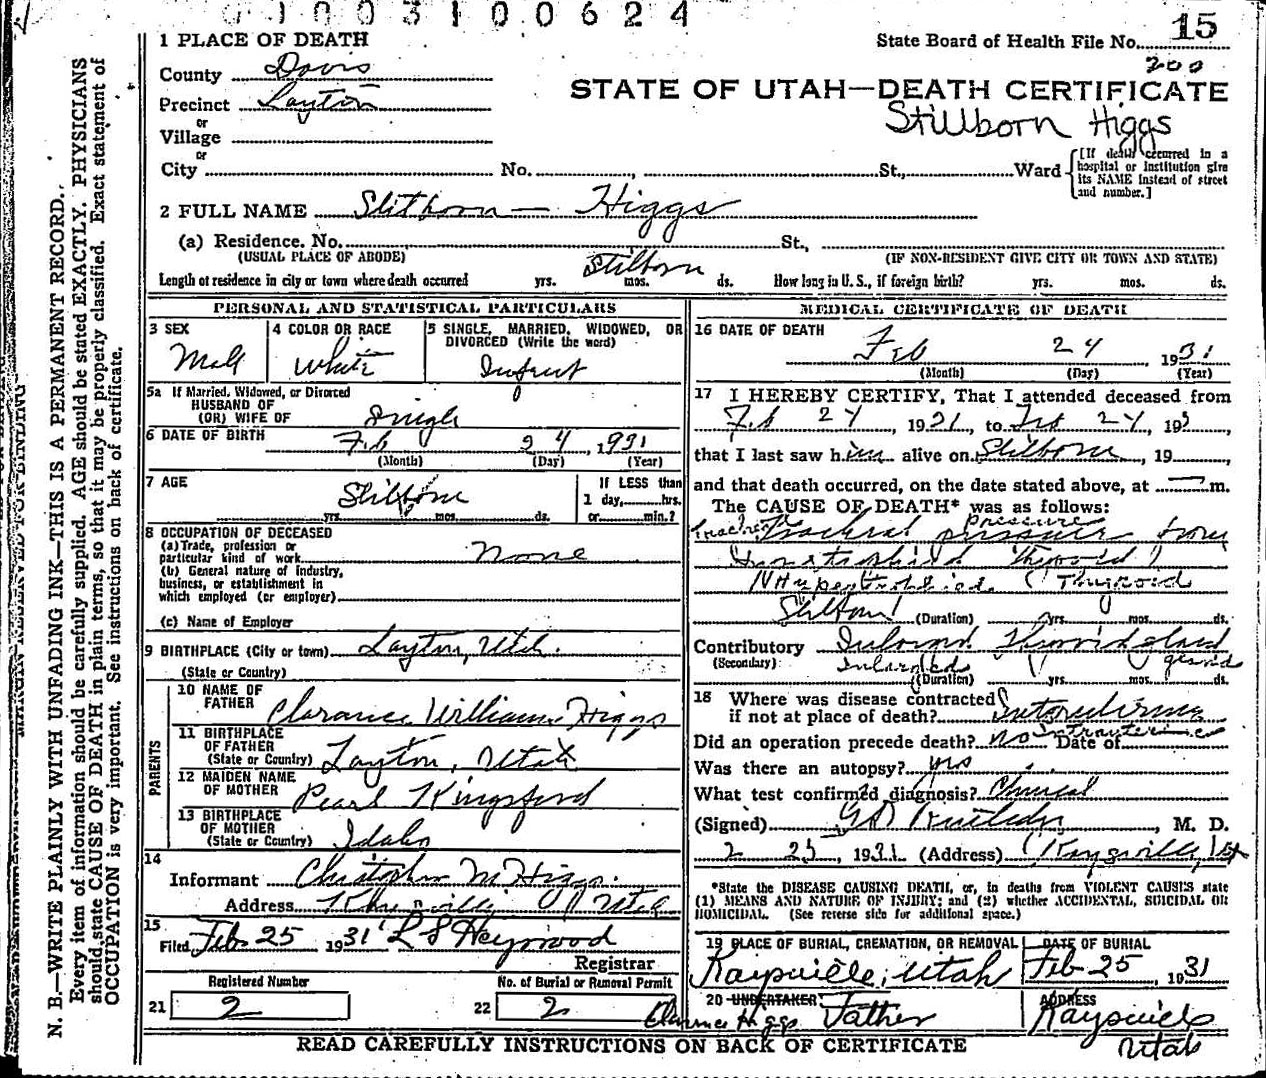 0 1 0 0 3 1 0 0 6 2 4
15
1 PLACE OF DEATH
State Board of Health File No.
200
County Davis
STATE OF UTAH—DEATH CERTIFICATE
Precinct Layton
Stillborn Higgs
or
Village
or
City No. , St., Ward
[If death occurred in a hospital or institution give its NAME instead of street and number.]
2 FULL NAME Stilborn — Higgs
(a) Residence. No. St.,
(USUAL PLACE OF ABODE) (IF NON-RESIDENT GIVE CITY OR TOWN AND STATE)
Stilborn
Length of residence in city or town where death occurred yrs. mos. ds. How long in U. S., if foreign birth? yrs. mos. ds.
PERSONAL AND STATISTICAL PARTICULARS
3 SEX
Male
4 COLOR OR RACE
White
5 SINGLE, MARRIED, WIDOWED, OR DIVORCED (Write the word)
Infant
5a If Married, Widowed, or Divorced
HUSBAND OF
(OR) WIFE OF Single
6 DATE OF BIRTH Feb 24, 1931
(Month) (Day) (Year)
7 AGE
Stilborn
yrs. mos. ds.
If LESS than
1 day, hrs.
or min.?
8 OCCUPATION OF DECEASED
(a) Trade, profession or
particular kind of work none
(b) General nature of industry,
business, or establishment in
which employed (or employer)
(c) Name of Employer
9 BIRTHPLACE (City or town) Layton, Utah.
(State or Country)
PARENTS
10 NAME OF
FATHER Clarance William Higgs
11 BIRTHPLACE
OF FATHER
(State or Country) Layton, Utah
12 MAIDEN NAME
OF MOTHER Pearl Kingsford
13 BIRTHPLACE
OF MOTHER
(State or Country) Idaho
14
Informant Christopher M Higgs.
Address Kaysville Utah
15
Filed Feb 25 1931 L S Heywood
Registrar
Registered Number
21 2
No. of Burial or Removal Permit
22 2
MEDICAL CERTIFICATE OF DEATH
16 DATE OF DEATH
Feb 24 1931
(Month) (Day) (Year)
17 I HEREBY CERTIFY, That I attended deceased from
Feb 24, 1931, to Feb 24, 193 ,
that I last saw him alive on Stilborn, 19 ,
and that death occurred, on the date stated above, at — m.
The CAUSE OF DEATH* was as follows:
pressure
Tracheal pressure from
Thyroid
(Thyroid
Stilborn (Duration) yrs. mos. ds.
Contributory Thyroid gland
(Secondary) Enlarged gland
(Duration) yrs. mos. ds.
18 Where was disease contracted
if not at place of death?
Intrauterine
Did an operation precede death? no Date of
Was there an autopsy? yes
What test confirmed diagnosis? Clinical
(Signed) , M. D.
2 25, 1931 (Address) Kaysville, Ut
*State the DISEASE CAUSING DEATH, or, in deaths from VIOLENT CAUSES state
(1) MEANS AND NATURE OF INJURY; and (2) whether ACCIDENTAL, SUICIDAL OR
HOMICIDAL. (See reverse side for additional space.)
19 PLACE OF BURIAL, CREMATION, OR REMOVAL
Kaysville, Utah
DATE OF BURIAL
Feb 25, 1931
20 UNDERTAKER
Clarence Higgs Father
ADDRESS
Kaysville
Utah
READ CAREFULLY INSTRUCTIONS ON BACK OF CERTIFICATE
N. B.—WRITE PLAINLY WITH UNFADING INK—THIS IS A PERMANENT RECORD.
Every item of information should be carefully supplied. AGE should be stated EXACTLY. PHYSICIANS
should state CAUSE OF DEATH in plain terms, so that it may be properly classified. Exact statement of
OCCUPATION is very important. See instructions on back of certificate.